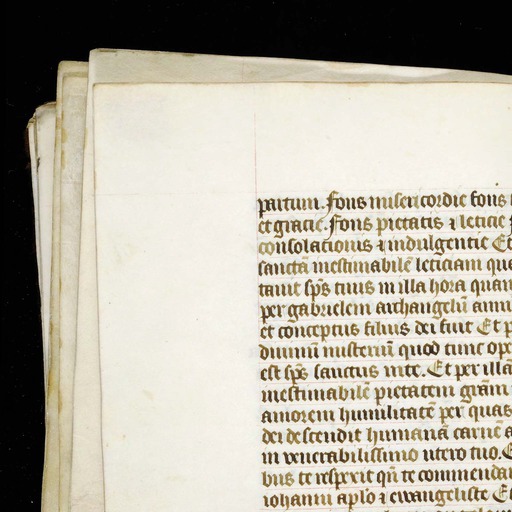 partum. fons misericordie fons
et gracie. fons pietatis ⁊ leticie
consolacionis ⁊ indulgentie Et
sanctā inestimabilē leticiam qua
tauit sp̄s tuus in illa hora quan
per gabrielem archangelū annu
et conceptus filius dei fuit Et p
diuinū misteriū quod tunc ope
est sp̄s sanctus in te. Et per illā
inestimabilē pietatem grām
amorem humilitatē per quas
dei descendit humanā carnē a
in venerabilissimo utero tuo. E
bus te respexit qn̄ te commenda
iohanni aplo ⁊ ewangeliste Et